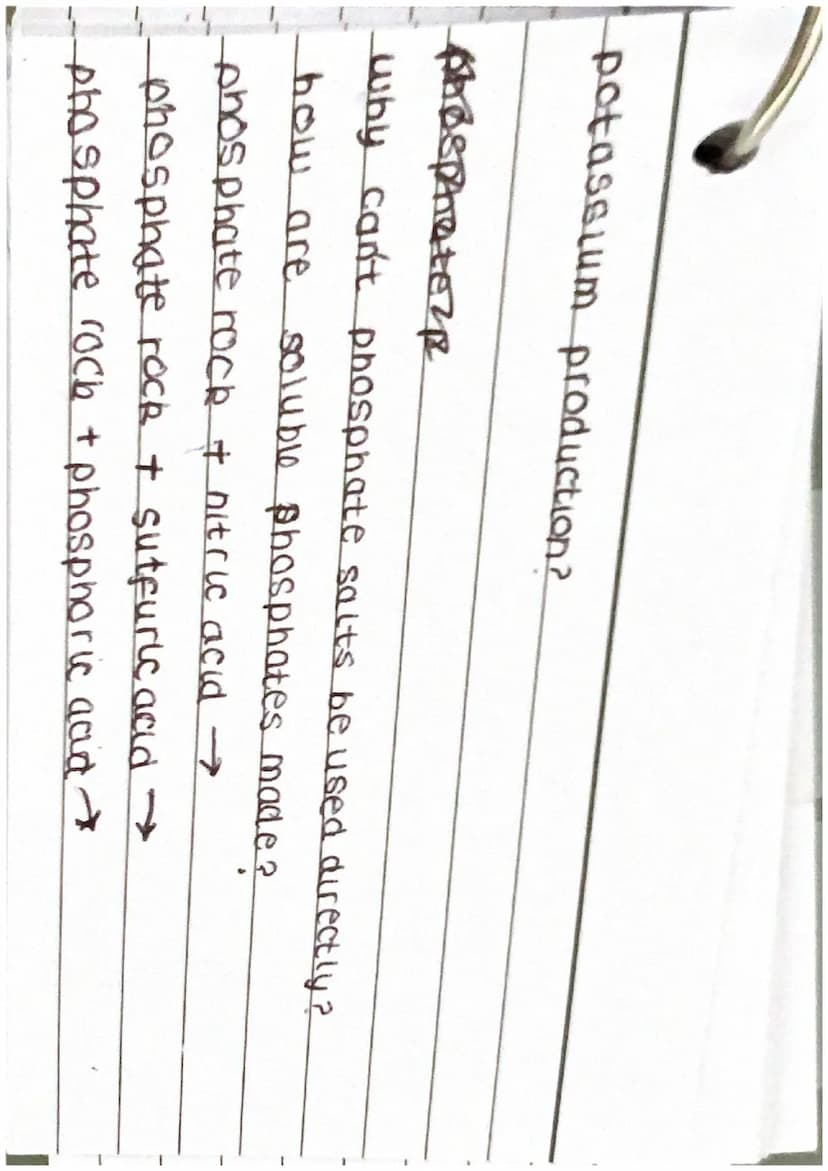 potassium production?
why can't phosphate salts be used directly?
how are soluble phosphates made?
phosphate rock + nitric acid →
phosphate rock + sulfuric acid →
phosphate rock + phosphoric acid →